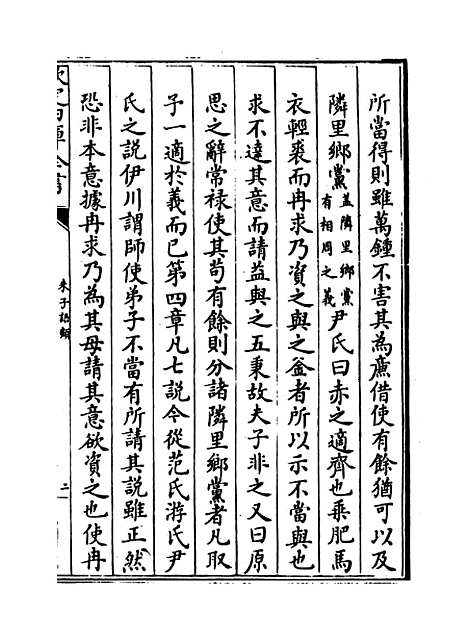 所當得則雖萬鍾不害其為廉借使有餘猶可以及
隣里鄉黨蓋隣里鄉黨有相周之義尹氏曰赤之適齊也乗肥馬
衣輕裘而冉求乃資之與之釜者所以示不當與也
求不達其意而請益與之五秉故夫子非之又曰原
思之辭常禄使其苟有餘則分諸隣里鄉黨者凡取
予一適於義而已第四章凡七說今從范氏游氏尹
氏之說伊川謂師使弟子不當有所請其說雖正然
恐非本意據冉求乃為其母請其意欲資之也使冉
欽定四庫全書
朱子語類
二